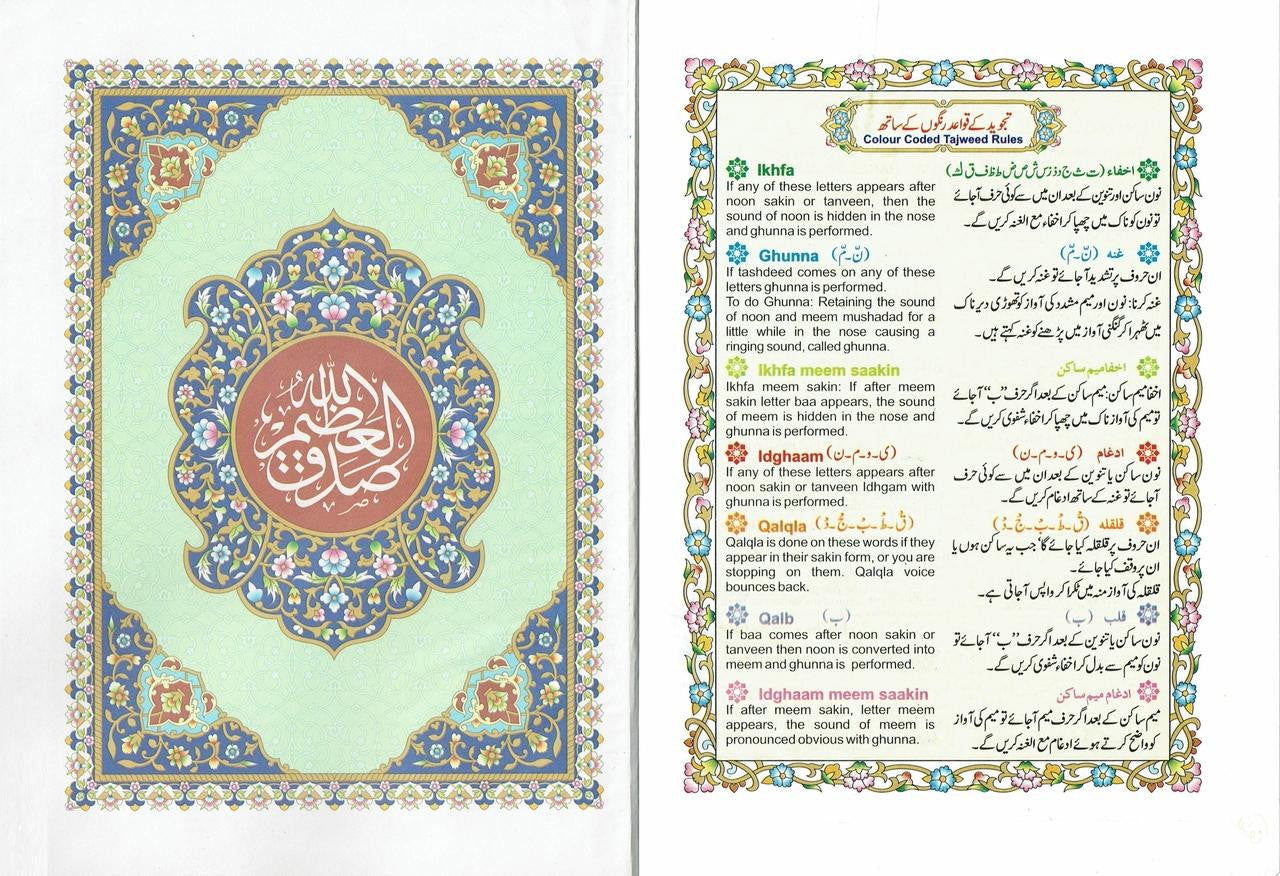 صدق الله العظيم
تجوید کے قواعد رنگوں کے ساتھ
Colour Coded Tajweed Rules
Ikhfa
If any of these letters appears after
noon sakin or tanveen, then the
sound of noon is hidden in the nose
and ghunna is performed.
Ghunna (نّ۔مّ)
If tashdeed comes on any of these
letters ghunna is performed.
To do Ghunna: Retaining the sound
of noon and meem mushadad for a
little while in the nose causing a
ringing sound, called ghunna.
Ikhfa meem saakin
Ikhfa meem sakin: If after meem
sakin letter baa appears, the sound
of meem is hidden in the nose and
ghunna is performed.
Idghaam (ی۔و۔م۔ن)
If any of these letters appears after
noon sakin or tanveen Idhgam with
ghunna is performed.
Qalqla (قْ۔طْ۔بْ۔جْ۔دْ)
Qalqla is done on these words if they
appear in their sakin form, or you are
stopping on them. Qalqla voice
bounces back.
Qalb (ب)
If baa comes after noon sakin or
tanveen then noon is converted into
meem and ghunna is performed.
Idghaam meem saakin
If after meem sakin, letter meem
appears, the sound of meem is
pronounced obvious with ghunna.
اخفاء (ت ث ج د ذ ز س ش ص ض ط ظ ف ق ك)
نون ساکن اور تنوین کے بعد ان میں سے کوئی حرف آجائے
تو نون کو ناک میں چھپا کر اخفاء مع الغنہ کریں گے۔
غنه (نّ۔مّ)
ان حروف پر تشدید آجائے تو غنہ کریں گے۔
غنہ کرنا: نون اور میم مشدد کی آواز کو تھوڑی دیر ناک
میں ٹھہرا کر گنگنی آواز میں پڑھنے کو غنہ کہتے ہیں۔
اخفا میم ساکن
اخفا میم ساکن: میم ساکن کے بعد اگر حرف ”ب“ آجائے
تو میم کی آواز ناک میں چھپا کر اخفاء شفوی کریں گے۔
ادغام (ی۔و۔م۔ن)
نون ساکن یا تنوین کے بعد ان میں سے کوئی حرف
آجائے تو غنہ کے ساتھ ادغام کریں گے۔
قلقله (قْ۔طْ۔بْ۔جْ۔دْ)
ان حروف پر قلقلہ کیا جائے گا جب یہ ساکن ہوں یا
ان پر وقف کیا جائے۔
قلقلہ کی آواز منہ میں ٹکرا کر واپس آجاتی ہے۔
قلب (ب)
نون ساکن یا تنوین کے بعد اگر حرف ”ب“ آجائے تو
نون کو میم سے بدل کر اخفاء شفوی کریں گے۔
ادغام میم ساکن
میم ساکن کے بعد اگر حرف میم آجائے تو میم کی آواز
کو واضح کرتے ہوئے ادغام مع الغنہ کریں گے۔